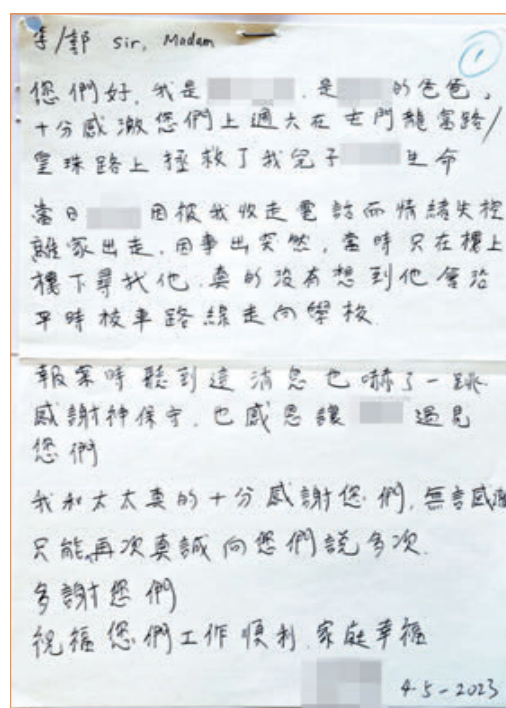 李/郭 sir, Madam
1
您們好,我是 .是 的爸爸,
十分感激您們上週六在屯門龍富路/
皇珠路上拯救了我兒子 生命
當日 因被我收走電話而情緒失控
離家出走.因事出突然,當時只在樓上
樓下尋找他.真的沒有想到他會沿
平時校車路線走向學校.
報案時聽到這消息也嚇了一跳.
感謝神保守.也感恩讓 遇見
您們
我和太太真的十分感謝您們,無言感激
只能再次真誠向您們說多次.
多謝您們
祝福您們工作順利.家庭幸福
4-5-2023